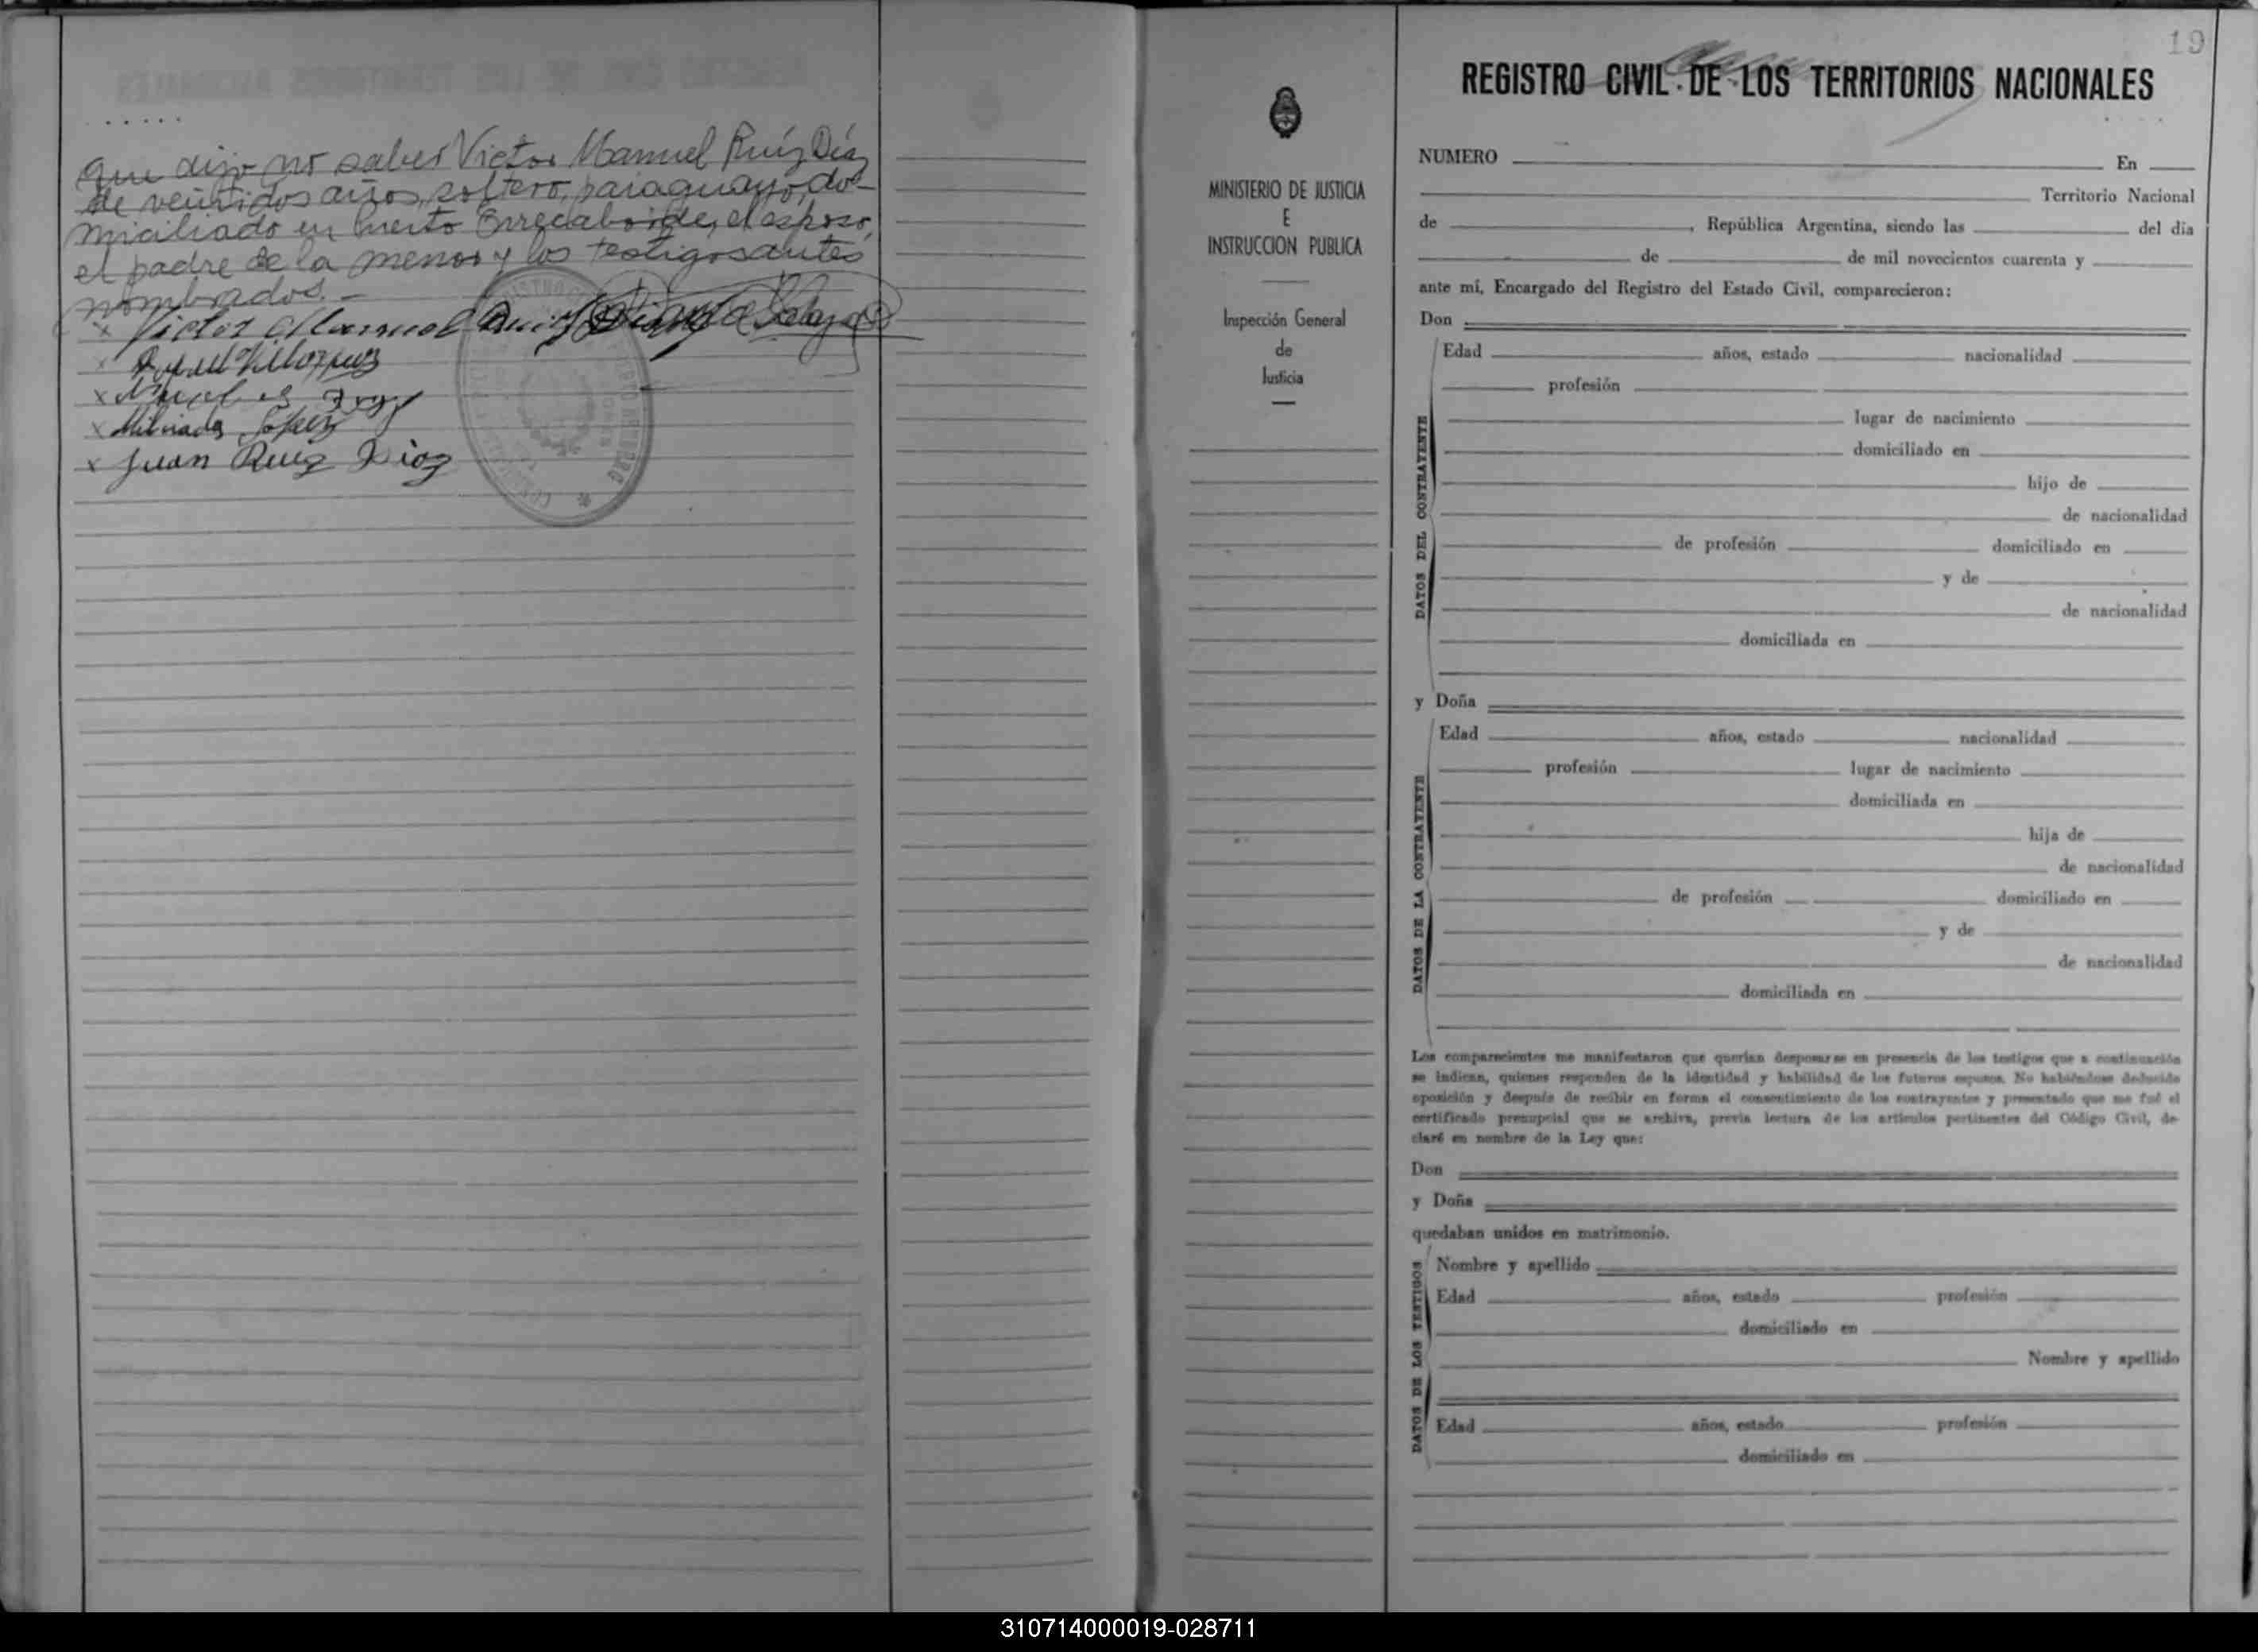 que dijo no saber Victor Manuel Ruíz Díaz
de veintidos años, soltero, paraguayo, do-
miciliado en Puerto Irrecaborde, el esposo,
el padre de la menor y los testigos antes
nombrados.—
x Victor Manuel Ruiz Diaz
x
x
x Milciades López
x Juan Ruiz Diaz
MINISTERIO DE JUSTICIA
E
INSTRUCCION PUBLICA
Inspección General
de
Justicia
19
REGISTRO CIVIL DE LOS TERRITORIOS NACIONALES
NUMERO En
Territorio Nacional
de , República Argentina, siendo las del día
de de mil novecientos cuarenta y
ante mí, Encargado del Registro del Estado Civil, comparecieron:
Don
DATOS DEL CONTRAYENTE
Edad años, estado nacionalidad
profesión
lugar de nacimiento
domiciliado en
hijo de
de nacionalidad
de profesión domiciliado en
y de
de nacionalidad
domiciliada en
y Doña
DATOS DE LA CONTRAYENTE
Edad años, estado nacionalidad
profesión lugar de nacimiento
domiciliada en
hija de
de nacionalidad
de profesión domiciliado en
y de
de nacionalidad
domiciliada en
Los comparecientes me manifestaron que querían desposarse en presencia de los testigos que a continuación
se indican, quienes responden de la identidad y habilidad de los futuros esposos. No habiéndose deducido
oposición y después de recibir en forma el consentimiento de los contrayentes y presentado que me fué el
certificado prenupcial que se archiva, previa lectura de los artículos pertinentes del Código Civil, de-
claré en nombre de la Ley que:
Don
y Doña
quedaban unidos en matrimonio.
DATOS DE LOS TESTIGOS
Nombre y apellido
Edad años, estado profesión
domiciliado en
Nombre y apellido
Edad años, estado profesión
domiciliado en
310714000019-028711